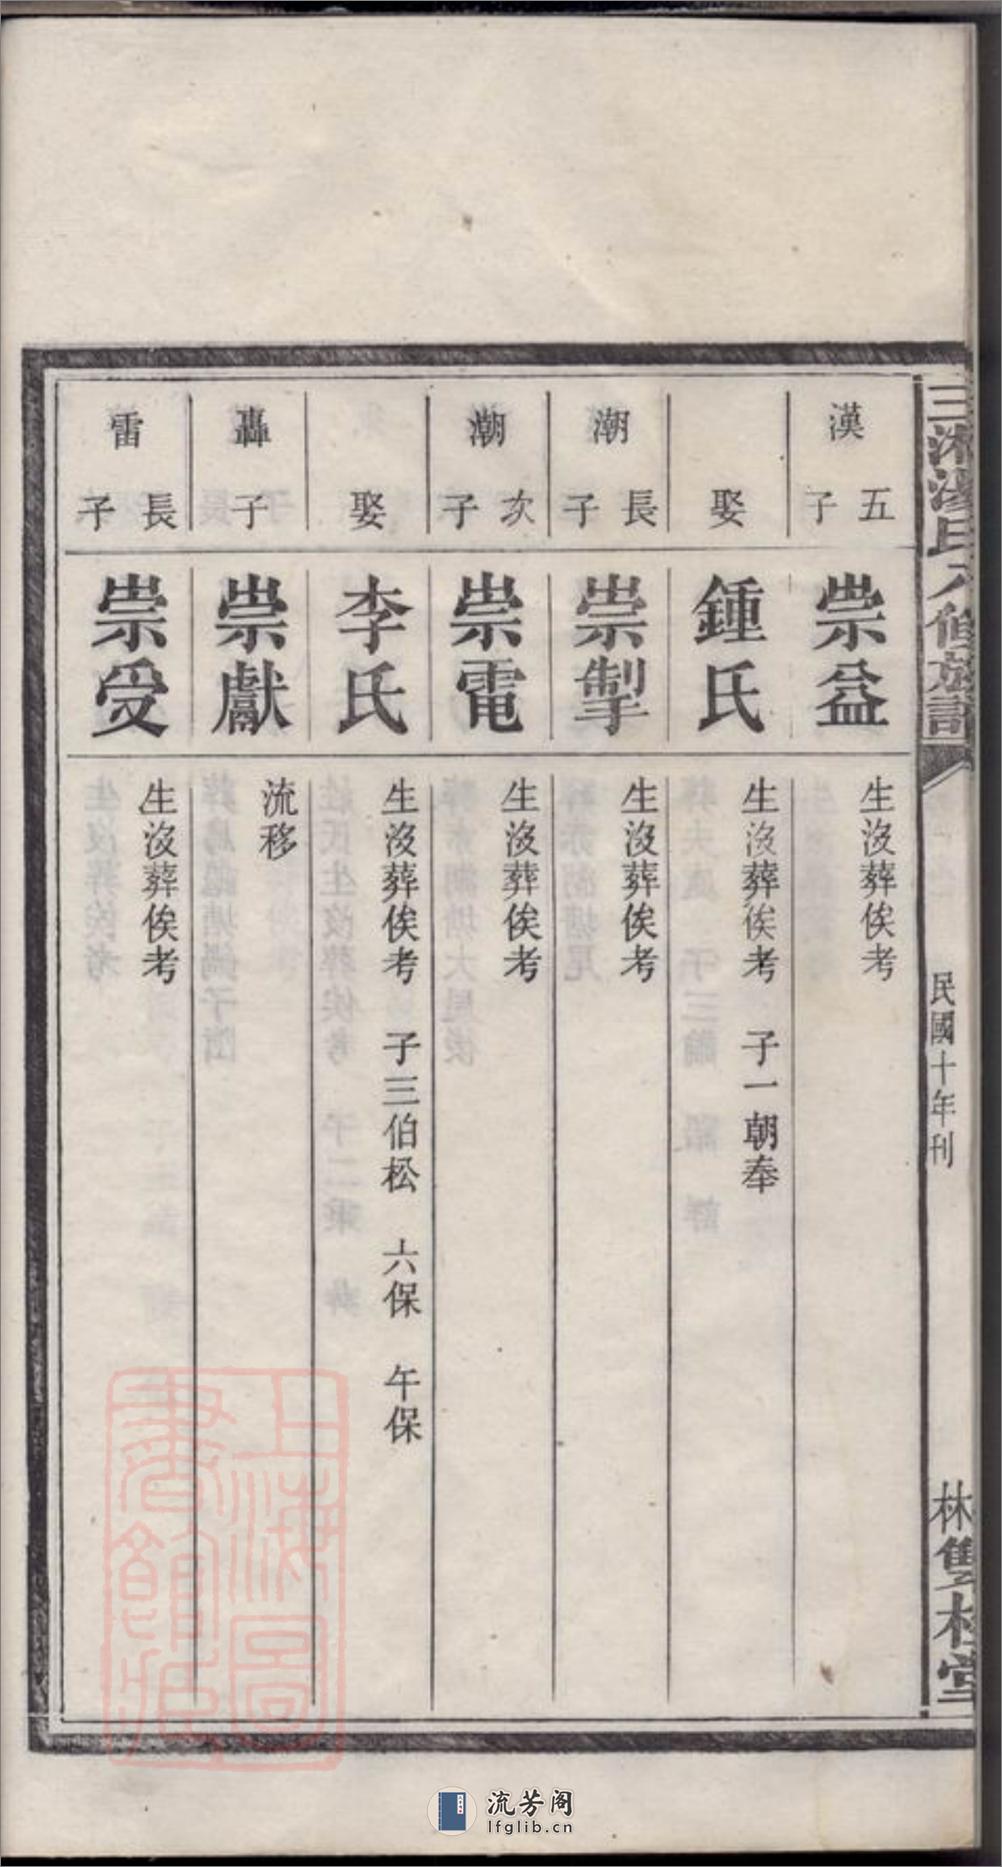 三湘湯氏六修族譜
民國十年刊
林雙桂堂
漢五子
崇益
生沒葬俟考
娶
鍾氏
生沒葬俟考 子一朝奉
潮長子
崇掣
生沒葬俟考
潮次子
崇電
生沒葬俟考
娶
李氏
生沒葬俟考 子三伯松 六保 午保
轟子
崇獻
流移
雷長子
崇受
生沒葬俟考
上海圖書館藏
流芳阁
lfglib.cn